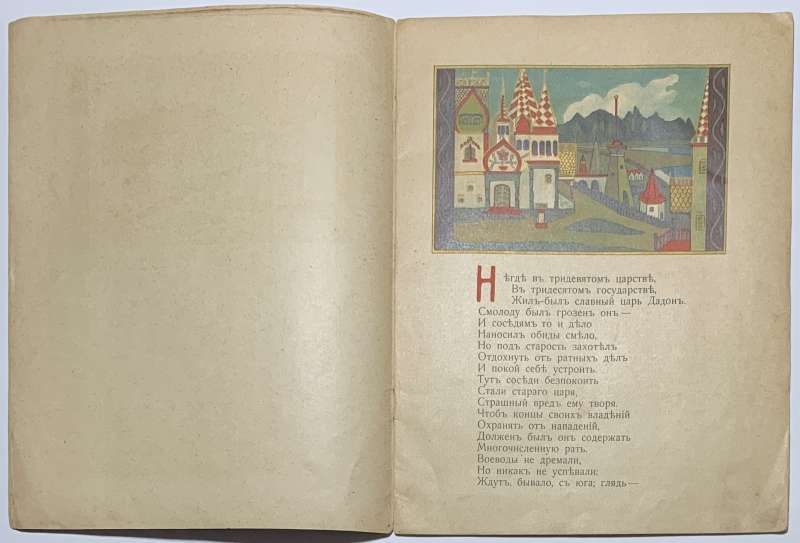 Нѣгдѣ въ тридевятомъ царствѣ,
Въ тридесятомъ государствѣ,
Жилъ-былъ славный царь Дадонъ.
Смолоду былъ грозенъ онъ —
И сосѣдямъ то и дѣло
Наносилъ обиды смѣло,
Но подъ старость захотѣлъ
Отдохнуть отъ ратныхъ дѣлъ
И покой себѣ устроить.
Тутъ сосѣди безпокоить
Стали стараго царя,
Страшный вредъ ему творя.
Чтобъ концы своихъ владѣній
Охранять отъ нападеній,
Долженъ былъ онъ содержать
Многочисленную рать.
Воеводы не дремали,
Но никакъ не успѣвали:
Ждутъ, бывало, съ юга; глядь —